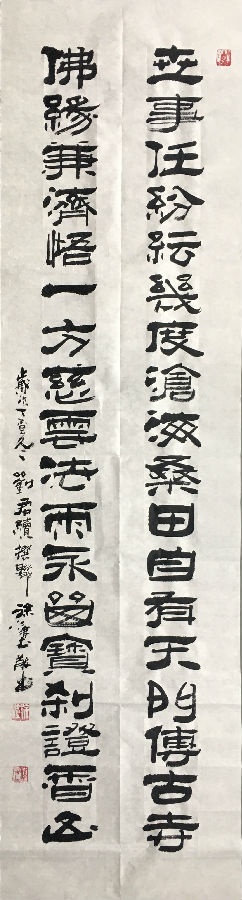 世事任紛紜幾度滄海桑田自有天門傳古寺
佛緣兼濟悟一方慈雲法雨永留寶刹證香山
歲次丁酉冬劉君續撰聯